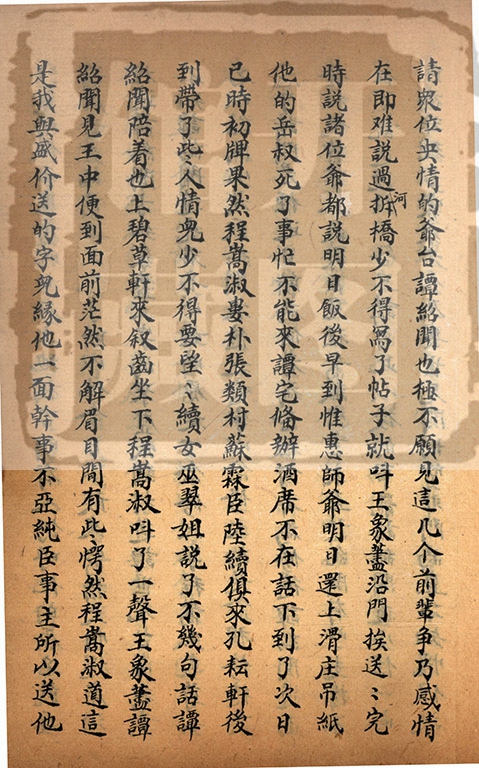 請衆位央情的爺台譚紹聞也極不願見這几个前輩爭乃感情
在即难説過河拆橋少不得寫了帖子就呌王象藎沿門挨送〻完
時説諸位爺都説明日飯後早到惟惠師爺明日還上滑庄吊紙
他的岳叔死了事忙不能來譚宅俻辦酒席不在話下到了次日
已時初牌果然程嵩淑婁朴張類村蘇霖臣陸續俱來孔耘軒後
到帶了些人情兒少不得要望〻續女巫翠姐説了不幾句話譚
紹聞陪着也上碧草軒來叙齒坐下程嵩淑呌了一聲王象藎譚
紹聞見王中便到面前茫然不解眉目間有些愕然程嵩淑道這
是我與盛价送的字兒縁他一面幹事不亞純臣事主所以送他